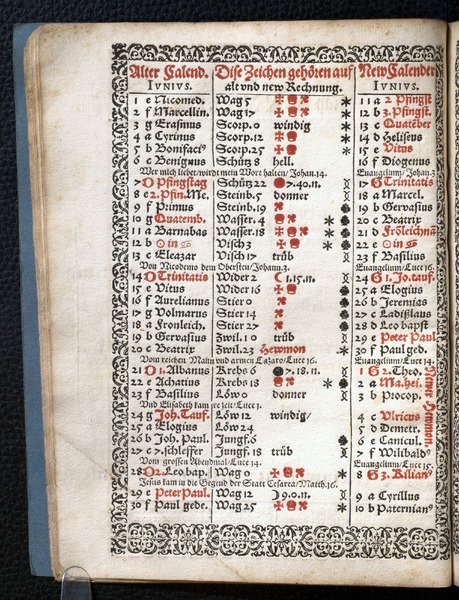 Alter Calend. Dise Zeichen gehören auf New Calender
IVNIVS. alt vnd new Rechnung. IVNIVS.
1 e Nicomed. Wag 5 11 a 2 Pfingst
2 f Marcellin. Wag 17 12 b 3. Pfingst.
3 g Erasmus Scorp. 0 windig 13 c Quatēber
4 a Cyrinus Scorp. 12 14 d Heliseus
5 b Bonifaci⁹ Scorp. 25 15 e Vitus
6 c Benignus Schütz 8 hell. 16 f Diogenus
Wer mich liebet/wirdt mein Wort halten/Johan. 14. Euangelium/Johan. 3
7 Pfingstag Schütz 22 7.40.n. 17 G Trinitatis
8 e 2. Pfin. Me. Steinb. 5 donner 18 a Marcel.
9 f Primus Steinb. 19 19 b Gervasius
10 g Quatemb. Wasser. 4 20 c Beatrix
11 a Barnabas Wasser. 18 21 d Fröleichnā
12 b ☉ in ♋ Visch 3 22 e ☉ in ♋
13 c Eleazar Visch 17 trüb 23 f Basilius
Von Nicodemo dem Obersten/Johann. 3. Euangelium/Luce 16.
14 Trinitatis Wider 2 1.15.n. 24 G 1. Jo. tauf.
15 e Vitus Wider 16 25 a Elogius
16 f Aurelianus Stier 0 26 b Jeremias
17 g Volmarus Stier 14 27 c Ladißlaus
18 a Fronleich. Stier 27 28 d Leo bapst
19 b Gervasius Zwil. 10 trüb 29 e Peter Paul
20 c Beatrix Zwil. 23 Hewmon 30 f Paul ged.
Vom reichen Mann vnd armen Lazaro/Luce 16. Euangelium/Luce 14.
21 1. Albanus Krebs 6 7.18.n. 1 G 2. Theo.
22 e Achatius Krebs 18 2 a Ma. hei.
23 f Basilius Löw 0 donner 3 b Procop.
Vnd Elisabeth kam jre zeit/Luce 1.
24 g Joh. Tauf. Löw 12 windig/ 4 c Vlricus
25 a Elogius Löw 24 5 d Demetr.
26 b Joh. Paul. Jungf. 6 6 e Canicul.
27 c 7. schleffer Jungf. 18 trüb 7 f Wilibald⁹
Vom grossen Abendmal/Luce 14. Euangelium/Luce 15.
28 2. Leo bap. Wag 0 8 G 3. Kilian⁹
Jesus kam in die Gegend der Statt Cesarea/Matth. 16.
29 e Peter Paul. Wag 12 9.0.n. 9 a Cyrillus
30 f Paul gede. Wag 25 10 b Paternian⁹
Newer Hewmon.